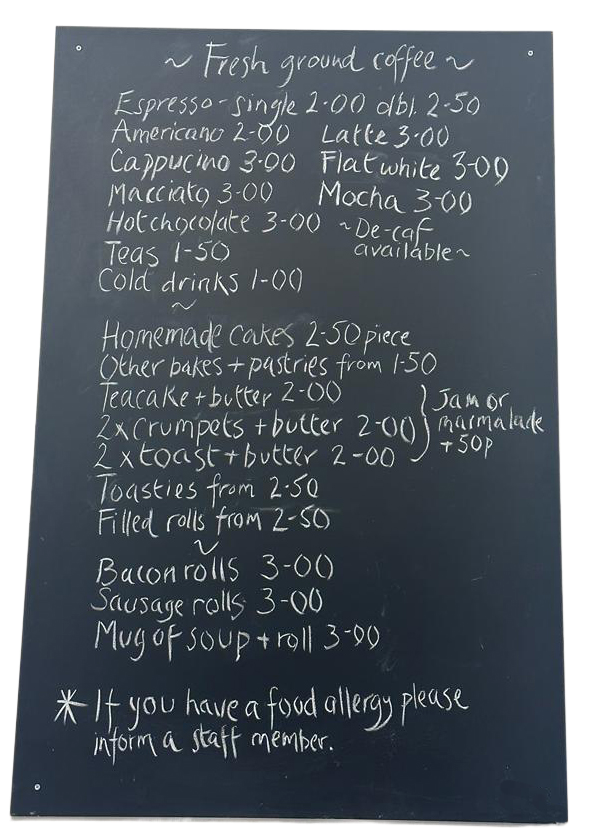 ~ Fresh ground coffee ~
Espresso - single 2-00 dbl. 2-50
Americano 2-00 Latte 3-00
Cappucino 3-00 Flat white 3-00
Macciato 3-00 Mocha 3-00
Hot chocolate 3-00 ~De-caf
Teas 1-50 available~
Cold drinks 1-00
~
Homemade cakes 2-50 piece
Other bakes + pastries from 1-50
Teacake + butter 2-00 } Jam or
2 x crumpets + butter 2-00 marmalade
2 x toast + butter 2-00 +50p
Toasties from 2-50
Filled rolls from 2-50
~
Bacon rolls 3-00
Sausage rolls 3-00
Mug of soup + roll 3-00
* If you have a food allergy please
inform a staff member.